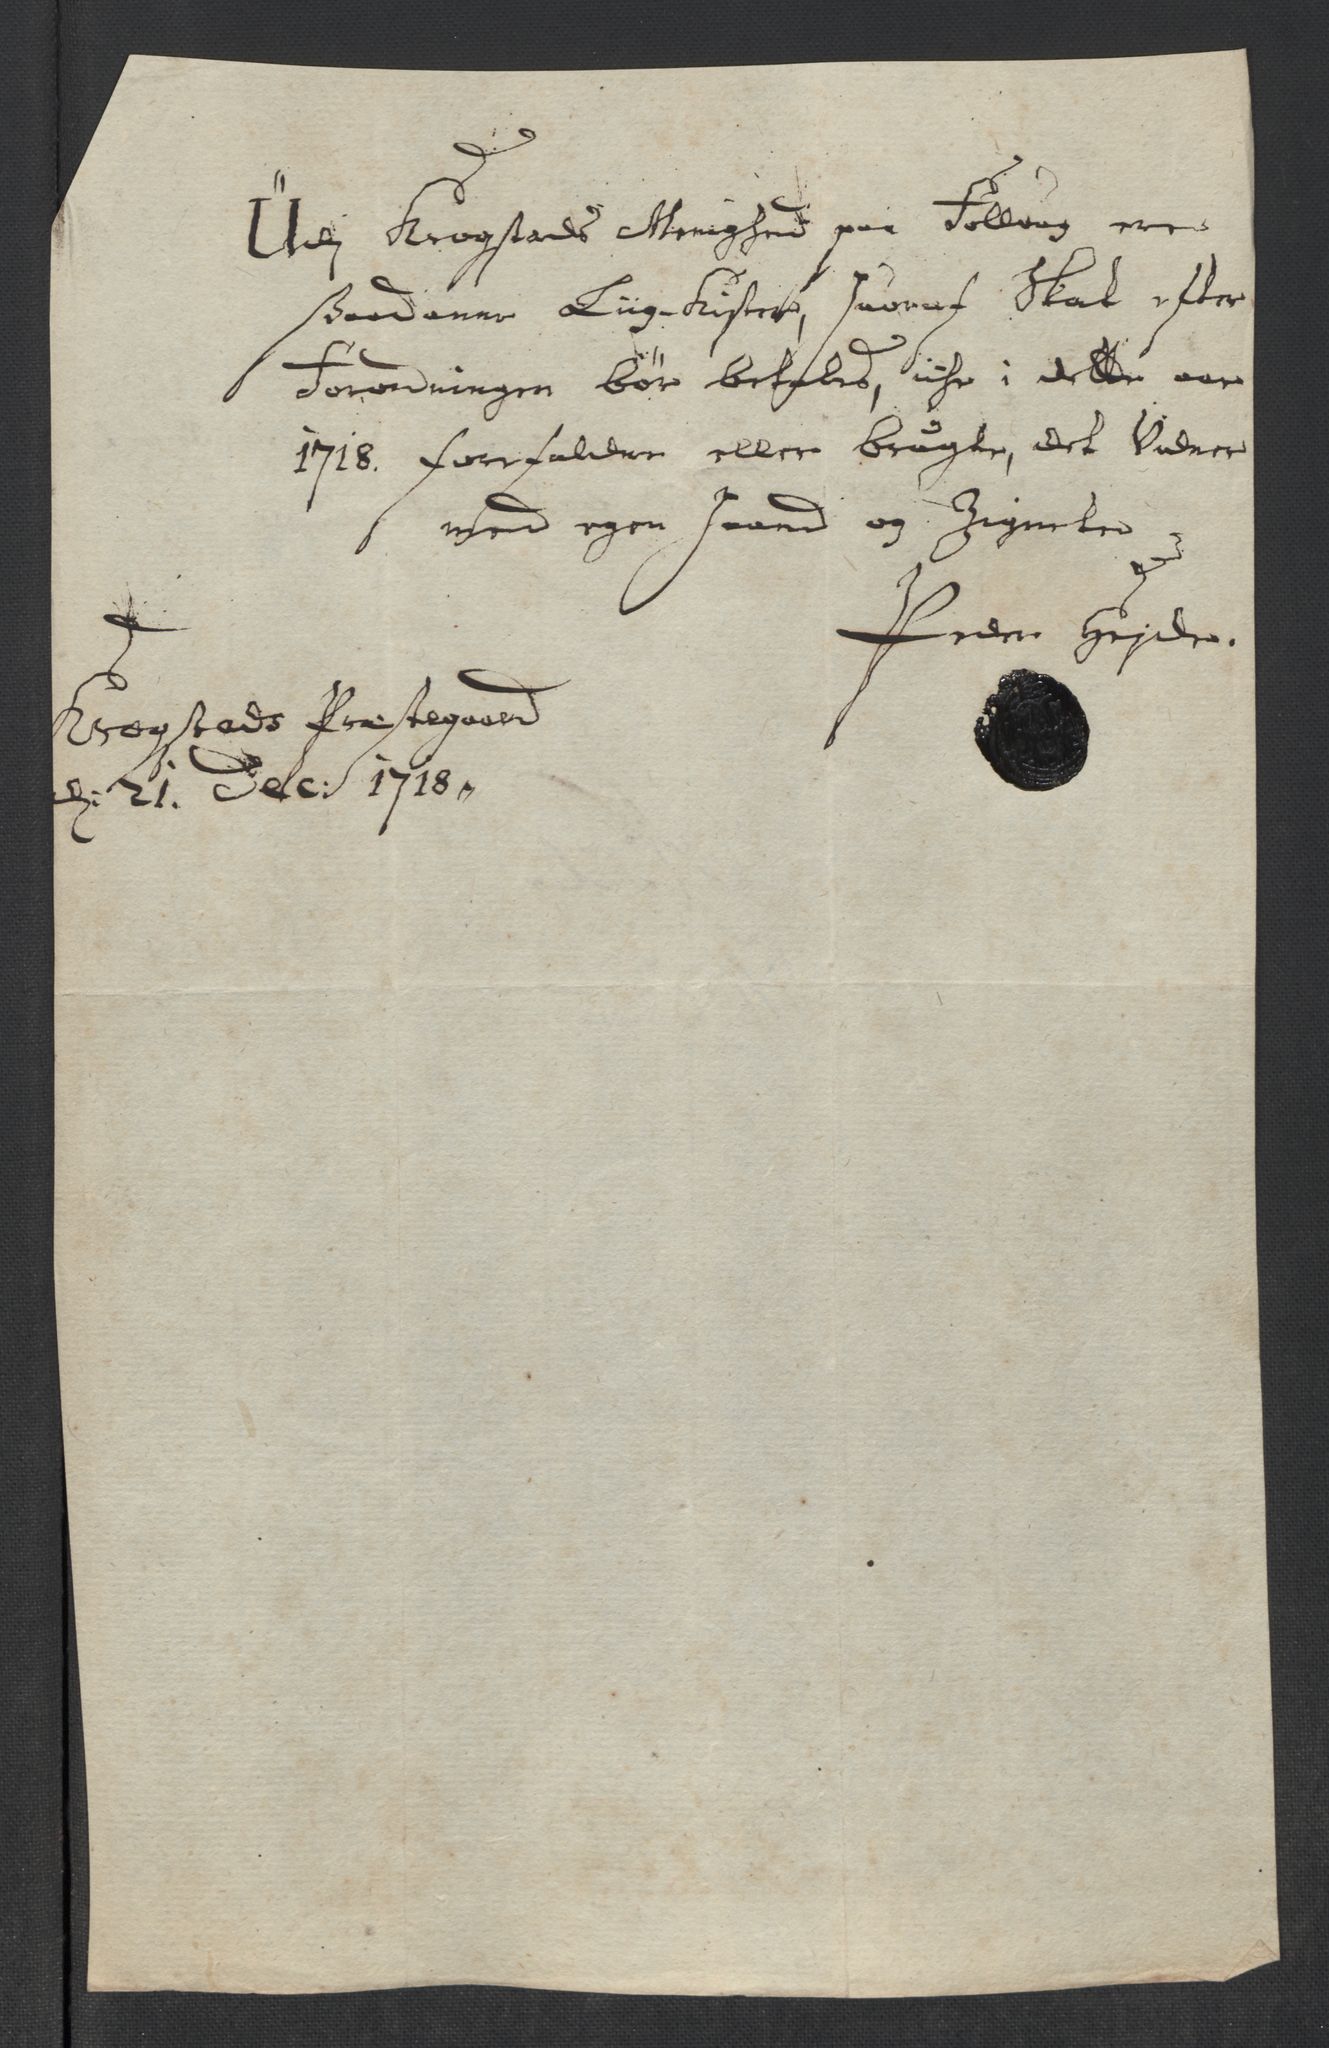 Udj Krogstads Menighed paa Folloug ere
saadanne Liig-Kister, hvoraf Skat efter
Forordningen bör betales, iche i dette aar
1718. forefaldne eller brugte, det Vidner
med egen haand og Zignete
Peder Heyde.
Krogstads Præstegaard
dj: 21. Dec: 1718